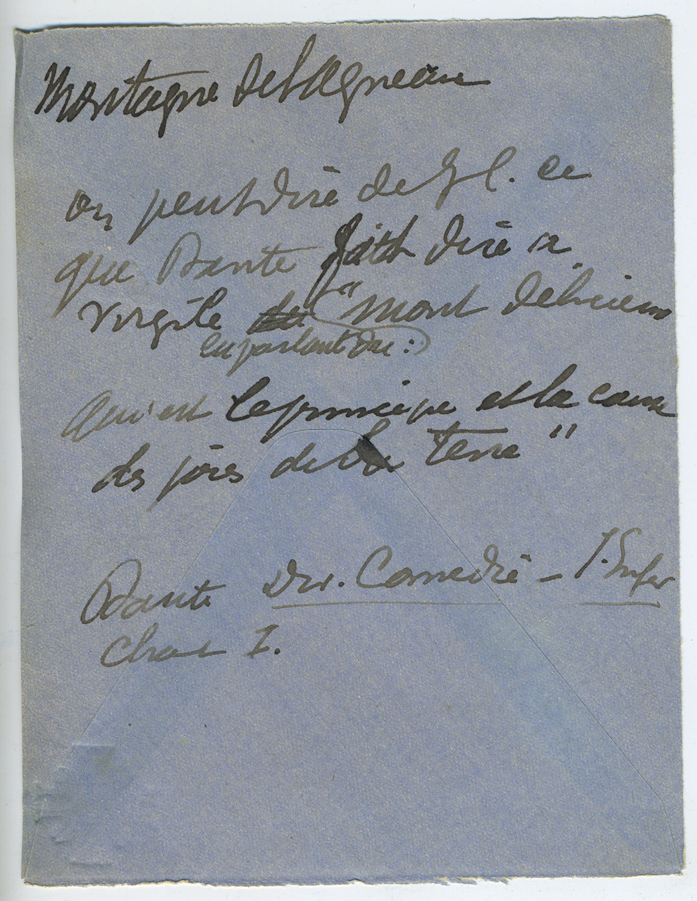 Montagne de l'Agneau
on peut dire de J C. ce
que Dante fait dire à
Virgile "mont délicieux
en parlant du :
qui est le principe et la cause
des joies de la Terre"
Dante Div. Comédie – I. Enfer
Chant I.